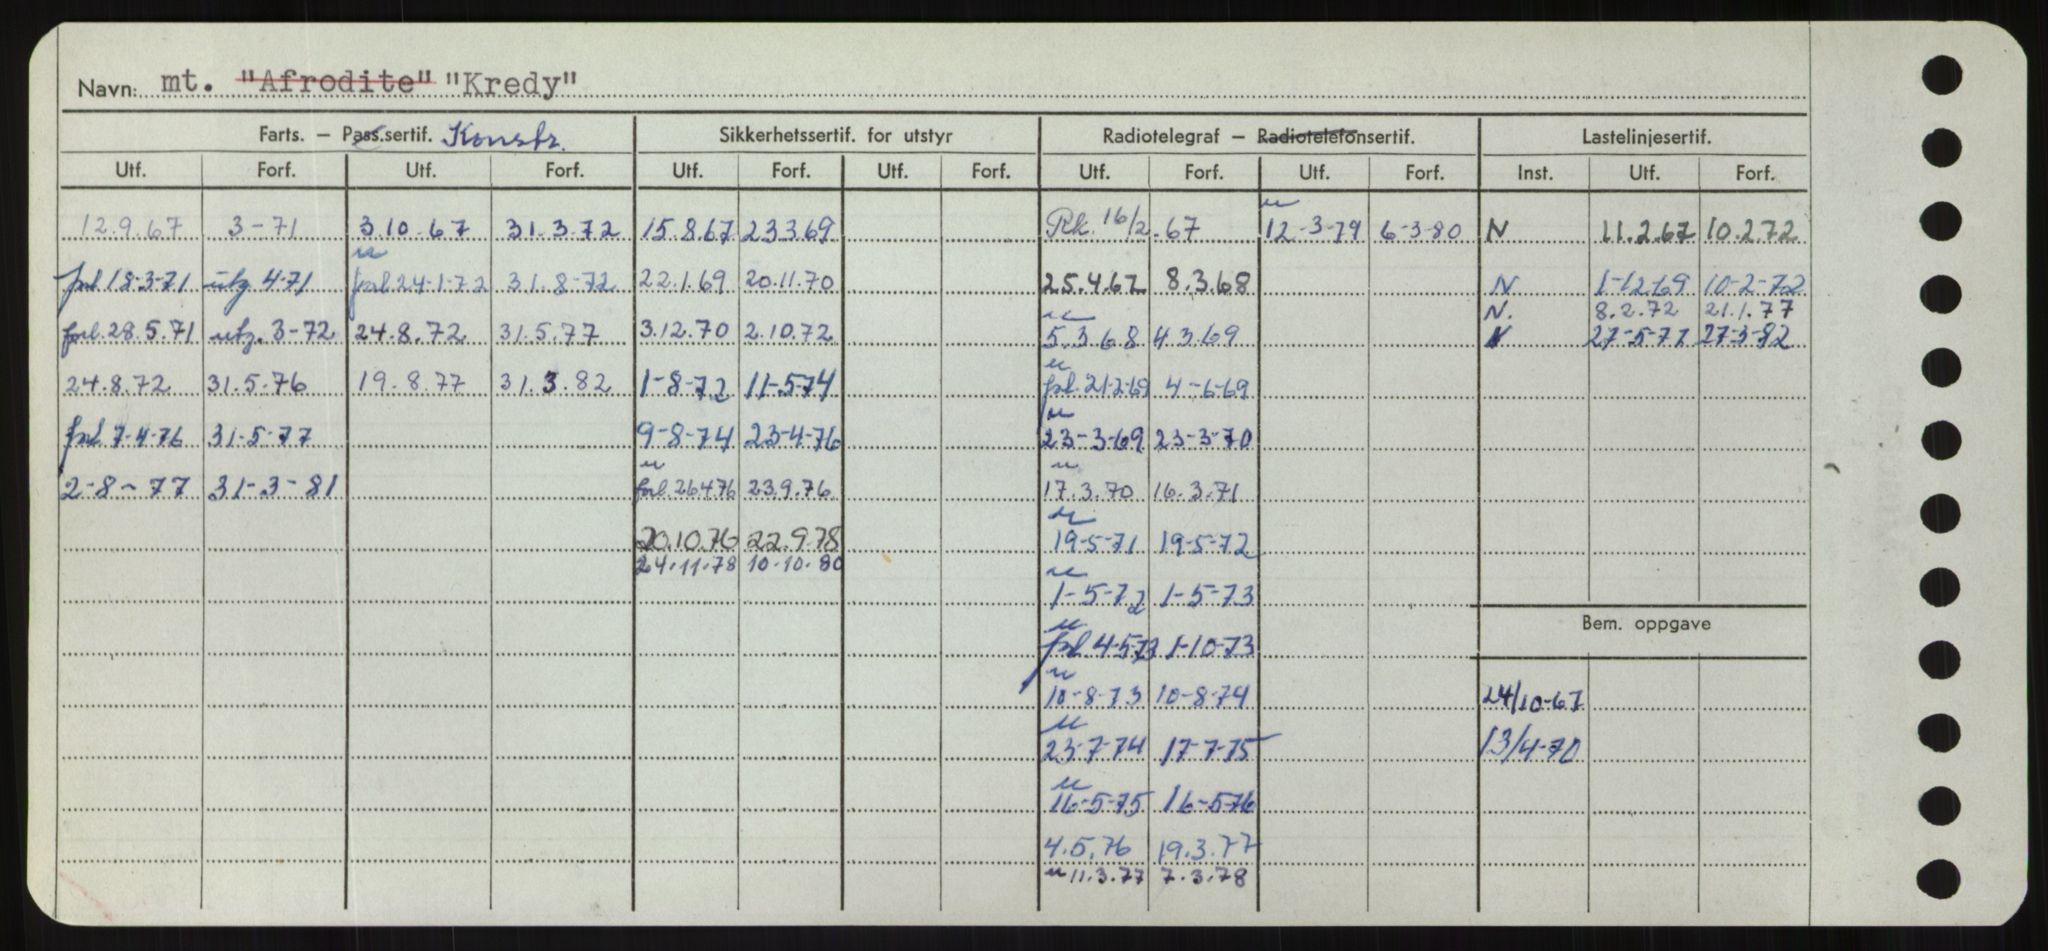 Navn: mt. "Afrodite" "Kredy"
Farts. – Pass.sertif. Konstr. Sikkerhetssertif. for utstyr Radiotelegraf – Radiotelefonsertif. Lastelinjesertif.
Utf. Forf. Utf. Forf. Utf. Forf. Utf. Forf. Utf. Forf. Utf. Forf. Inst. Utf. Forf.
12.9.67 3-71 3.10.67 31.3.72 15.8.67 23.3.69 Rk. 16/2.67 u 12-3-79 6-3-80 N 11.2.67 10.2.72
forl 18-3-71 utg 4-71 u forl 24-1-72 31.8-72 22.1.69 20.11.70 25.4.67 8.3.68 N 1-12.69 10-2-72
N. 8.2.72 21.1.77
forl. 28.5.71 utg. 3-72 24.8.72 31.5.77 3.12.70 2.10.72 u 5.3.68 4.3.69 N 27-5-77 27-3-82
24.8.72 31.5.76 19.8.77 31.3.82 1-8-72 11-5-74 u forl. 21-2-69 4-6-69
forl 7-4-76 31-5-77 9-8-74 23-4-76 u 23-3-69 23-3-70
2-8-77 31-3-81 u forl. 26.4.76 23.9.76 u 17.3.70 16.3.71
20.10.76 22.9.78 u 19-5-71 19-5-72
24.11.78 10.10.80
u 1-5-72 1-5-73
Bem. oppgave
u forl 4-5-73 1-10-73
u 10-8-73 10-8-74 24/10-67
u 23-7-74 17-7-75 13/4-70
u 16-5-75 16-5-76
4.5.76 19.3.77
u 11.3.77 7.3.78